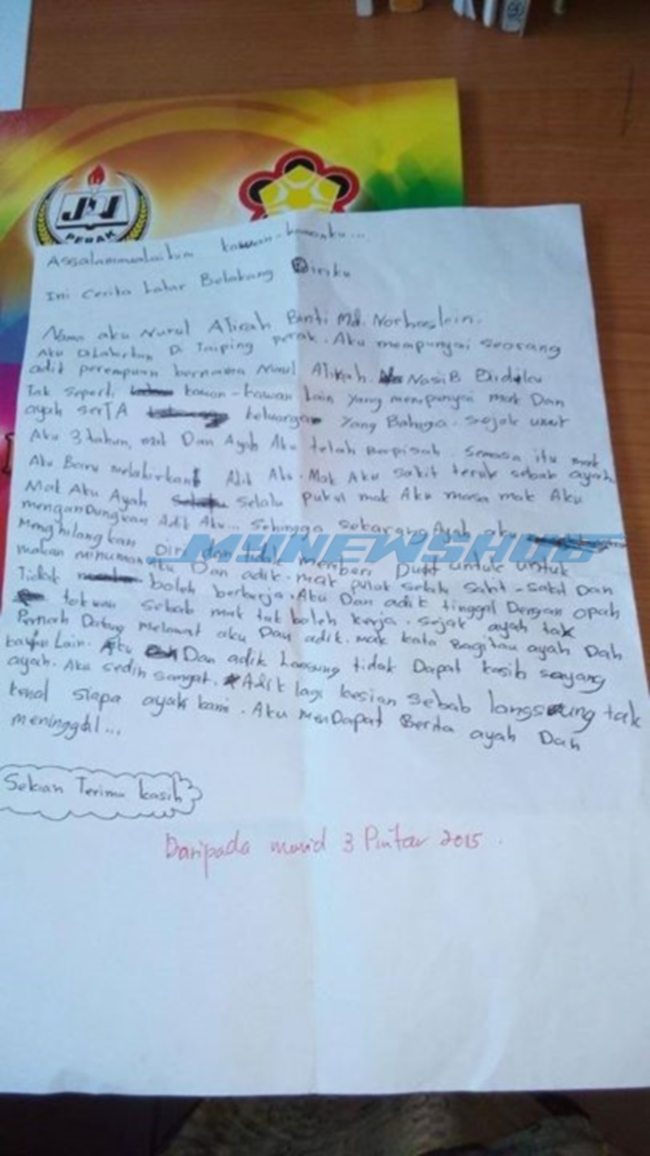 JU
PERAK
Assalammualaikum kawan-kawanku...
Ini Cerita Latar Belakang Diriku
Nama aku Nurul Atirah Binti Md. Norhaslein.
Aku Dilahirkan Di Taiping perak. Aku mempunyai seorang
adik perempuan bernama Nurul Atikah. Nasib Diriku
Tak Seperti kawan-kawan lain yang mempunyai mak Dan
ayah serTA keluarga yang Bahagia. Sejak umur
Aku 3 tahun, mak Dan Ayah Aku telah Berpisah. Semasa itu mak
Aku Baru melahirkan Adik Aku. Mak Aku sakit teruk sebab ayah
Mak Aku Ayah selalu pukul mak Aku masa mak Aku
mengandungkan Adik Aku... Sehingga sekarang Ayah aku
Menghilangkan Diri dan tidak memberi Duit untuk untuk
makan minuman aku Dan adik. mak pulak selalu Sakit-Sakit Dan
Tidak boleh berkerja. Aku Dan adik tinggal Dengan opah
tokwan Sebab mak tak boleh kerja. Sejak ayah tak
Pernah Datang melawat aku Dan adik. mak kata Bagitau ayah Dah
kahwin Lain. Aku Dan adik Langsung tidak Dapat kasih sayang
ayah. Aku sedih sangat. Adik lagi kesian Sebab langsung tak
kenal siapa ayah kami. Aku menDapat Berita ayah Dah
meninggal...
MYNEWSHUB
Sekian Terima kasih
Daripada murid 3 Pintar 2015.